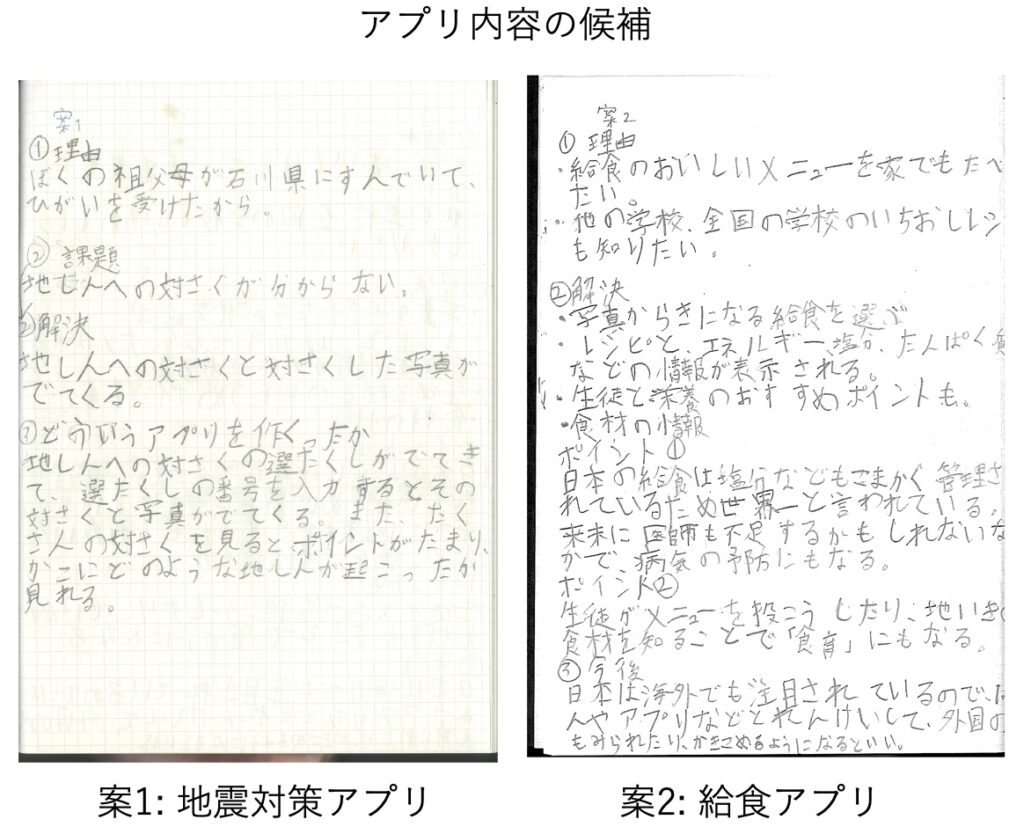 アプリ内容の候補
案1
①理由
ぼくの祖父母が石川県にすんでいて、
ひがいを受けたから。
② 課題
地しんへの対さくが分からない。
②解決
地しんへの対さくと対さくした写真が
でてくる。
どういうアプリを作くったか
地しんへの対さくの選たくしがでてき
て、選たくしの番号を入力するとその
対さくと写真がでてくる。また、たく
さんの対さくを見ると、ポイントがたまり、
かこにどのような地しんが起こったか
見れる。
案2
① 理由
・給食のおいしいメニューを家でもたべ
たい。
・他の学校、全国の学校のいちおしレシ
も知りたい。
②解決
・写真からきになる給食を選ぶ
・レシピと、エネルギー、塩分、たんぱく質
などの情報が表示される。
・生徒と栄養のおすすめポイントも。
・食材の情報
ポイント①
日本の給食は塩分などもこまかく管理さ
れているため世界一と言われている。
来未に医師も不足するかもしれないな
かで、病気の予防にもなる。
ポイント②
生徒がメニューを投こうしたり、地いきの
食材を知ることで「食育」にもなる。
③今後
日本は海外でも注目されているので、
人やアプリなどとれんけいして、外国の
もみられたり、かきこめるようになるといい。
案1: 地震対策アプリ
案2: 給食アプリ